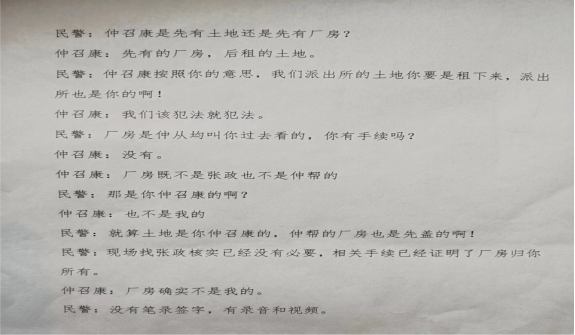 民警：仲召康是先有土地还是先有厂房？
仲召康：先有的厂房，后租的土地。
民警：仲召康按照你的意思，我们派出所的土地你要是租下来，派出
所也是你的啊！
仲召康：我们该犯法就犯法。
民警：厂房是仲从均叫你过去看的，你有手续吗？
仲召康：没有。
仲召康：厂房既不是张政也不是仲帮的
民警：那是你仲召康的啊？
仲召康：也不是我的
民警：就算土地是你仲召康的，仲帮的厂房也是先盖的啊！
民警：现场找张政核实已经没有必要，相关手续已经证明了厂房归你
所有。
仲召康：厂房确实不是我的。
民警：没有笔录签字，有录音和视频。